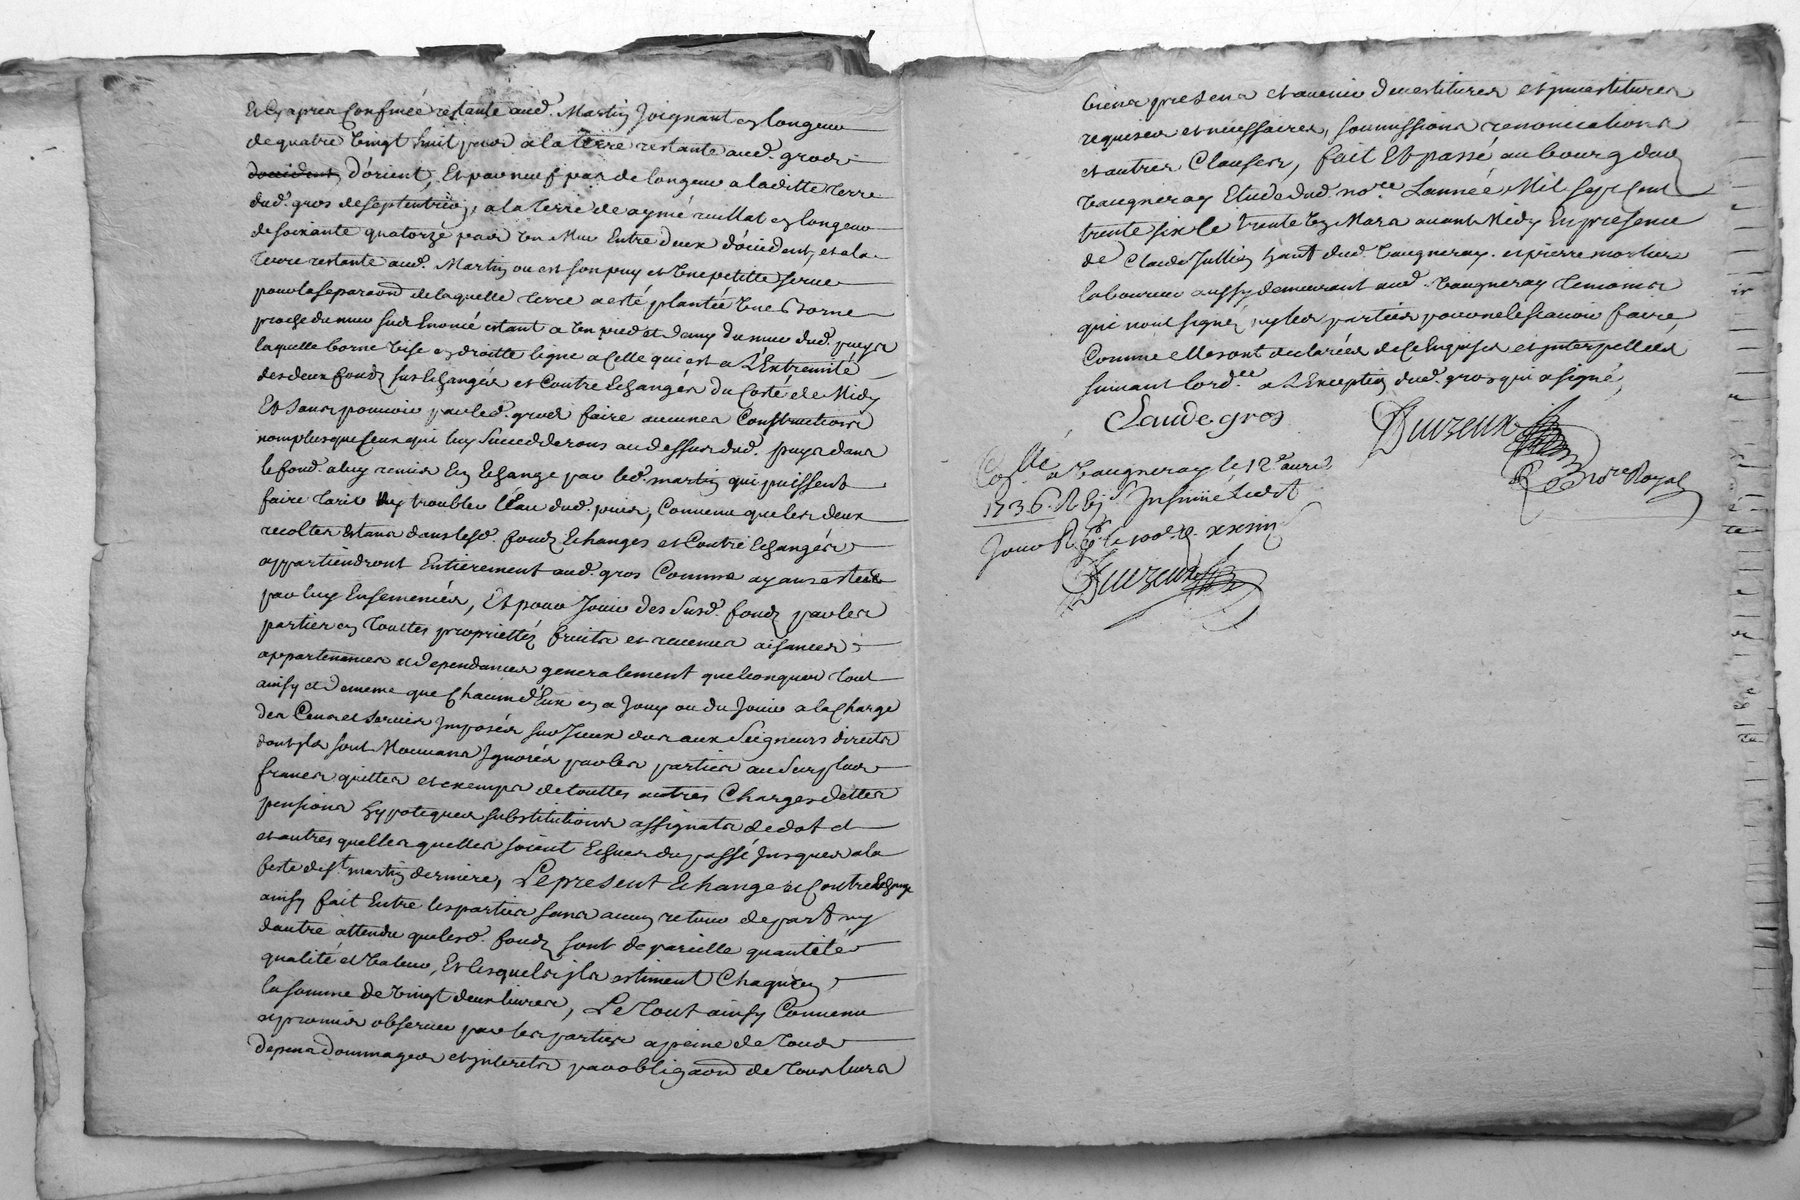 et cy apres confinée restante aud. Martin joignant en longeur
de quatre vingt huit pieds a la terre restante aud. gros
d'orient, et par neuf pas de longeur a laditte terre
dud. gros de septentrion, a la terre de aymé en longeur
de soixante quatorze pieds un mur entre deux d'occident, et a la
terre restante aud. Martin ou est son puy et une petitte serve
pour la separaon de laquelle terre a esté plantée une borne
proche du mur sus enoncé estant a un pied et demy du mur dud. puys
laquelle borne vise en droitte ligne a celle qui est a l'extremité
des deux fondz sus echangés et contre echangés du costé de Midy
et sans pouvoir par led. gros faire aucunes constructions
nomplus que ceux qui luy succedderons au dessus dud. puys dans
le fond. a luy remis en echange par led. martin qui puissent
faire tarir ny troubler l'eau dud. puis, convenu que les deux
recoltes estans dans lesd. fondz echanges et contre echangés
appartiendront entierement aud. gros comme ayans estées
par luy ensemencées, et pour jouir des susd. fondz par les
parties en touttes proprietéz fruits et revenus aisances
appartenances et dependances generalement quelconques tout
ainsy et de meme que chacun d'eux en a jouy ou du jouir a la charge
des cens et servis imposés sur iceux dus aux seigneurs directs
dont ils sont mouvans ignorés par les parties au surplus
francs quittes et exemps de touttes autres charges dettes
pensions hypoteques substitutions assignats de dot et
et autres quelles quelles soient echues du passé jusques a la
feste de st martin derniere, le present echange et contre echange
ainsy fait entre les parties sans aucun retour de part ny
dautre attendu que lesd. fondz sont de pareille quantité
qualité et valeur, et lesquels ils estiment chaquun
la somme de vingt deux livres, le tout ainsy convenu
et promis observer par les parties a peine de tous
depens dommages et interets par obligaon de tous leurs
biens presens et avenir devestitures et investitures
requises et necessaires, soumissions renonciations
et autres clauses, fait et passé au bourg dud
vaugneray etude dud. nore. Lannée mil sept cent
trente six le trente un Mars avant Midy en presence
de Claude Jullien hant. dud. vaugneray. et pierre mortier
laboureur aussy demeurant aud. vaugneray temoins
qui nont signé, ny les parties pour ne le scavoir faire,
comme elles ont declarées de ce enquises et interpellées
suivant lord.ce a l'exception dud. gros qui a signé,
Claude gros
nore. Royal
Collé a vaugneray le 12e avril
1736. insinué ledit
jour